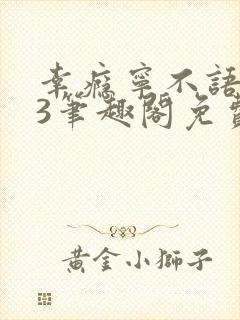 幸瘾寧不語
3筆趣閣免費
黃金小獅子